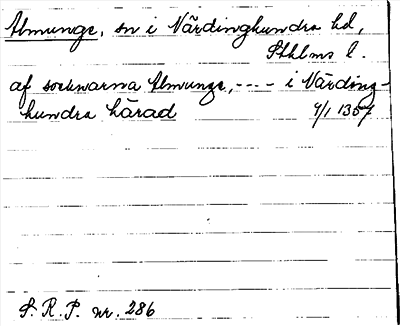 Almunge, sn i Närdinghundra hd,
Sthlms l.
af soknarna Almunge, ---- i Närding-
hundra härad 9/1 1357
S. R. P. nr. 286